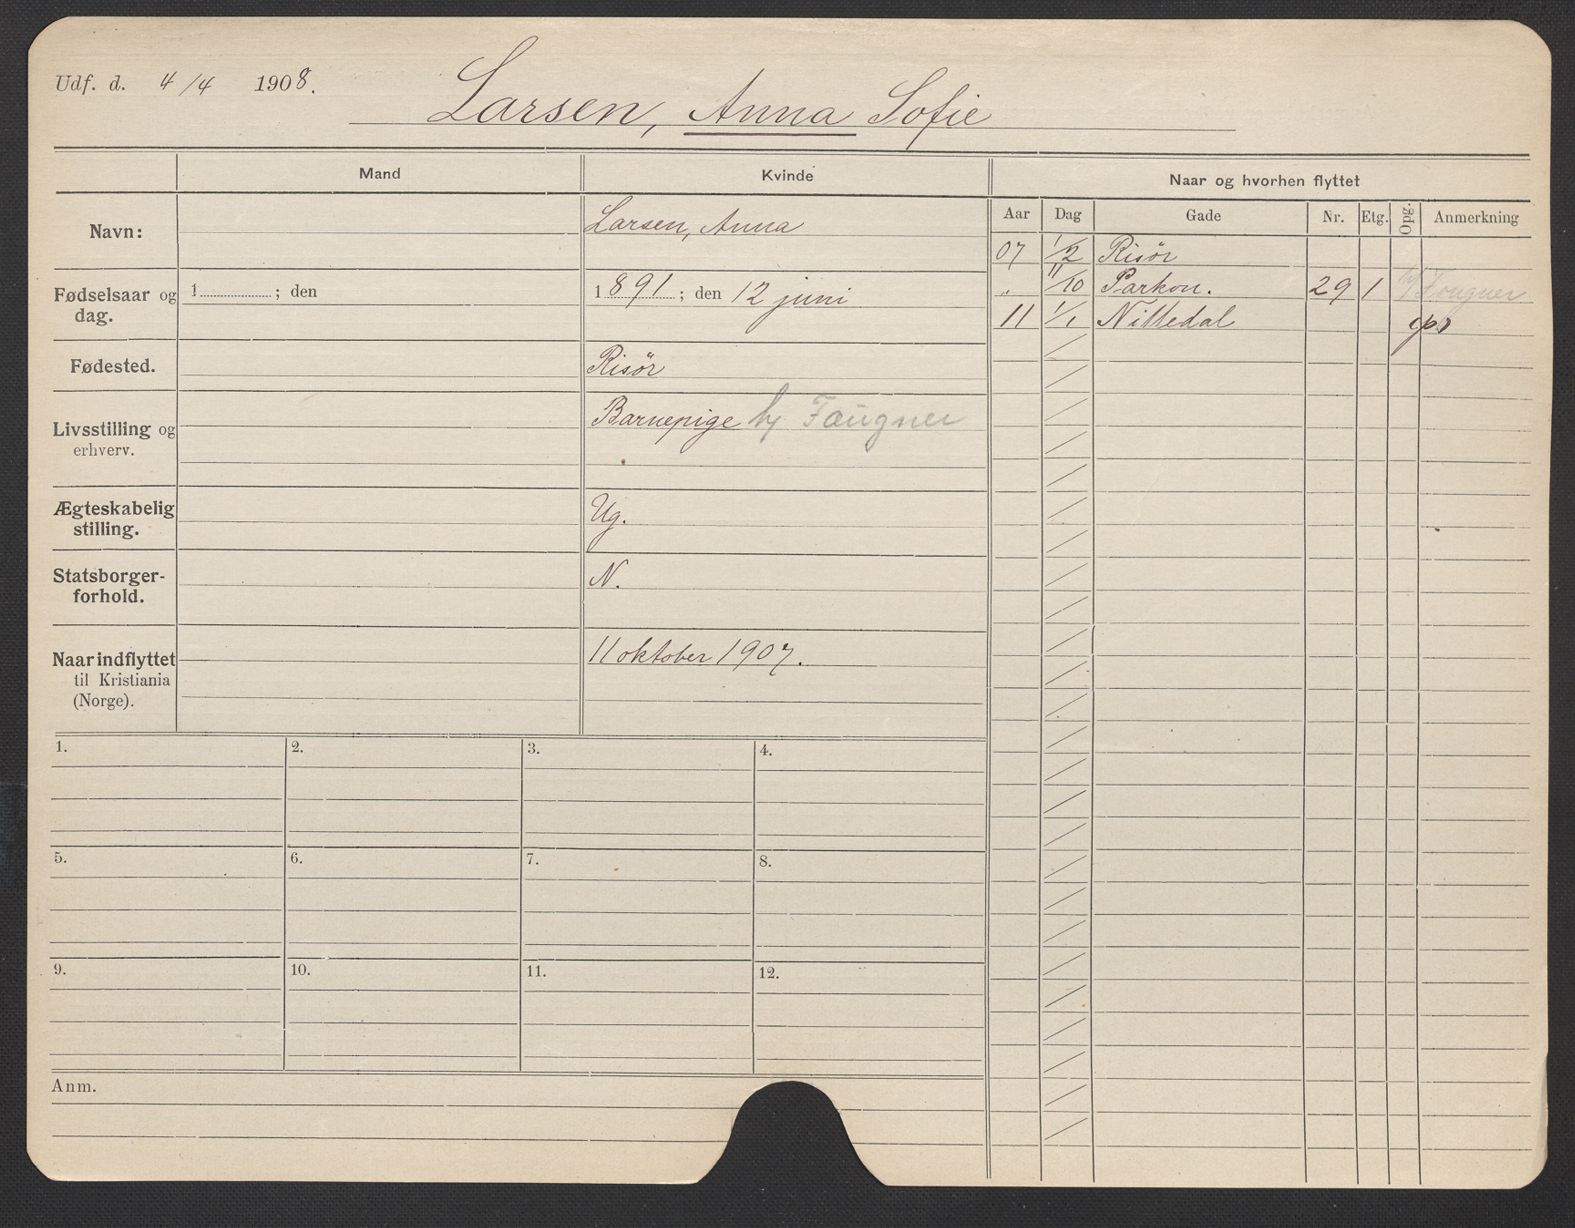 Udf. d. 4/4 1908.
Larsen, Anna Sofie
Mand
Kvinde
Naar og hvorhen flyttet
Aar
Dag
Gade
Nr.
Etg.
Opg.
Anmerkning
Navn:
Larsen, Anna
07 1/2 Risör
Fødselsaar og dag.
1 ; den
1891 ; den 12 juni
" 11/10 Parkon. 29 1 h/ Fougner
11 1/1 Nittedal
Fødested.
Risör
Livsstilling og erhverv.
Barnepige h/ Faugner
Ægteskabelig stilling.
Ug.
Statsborger-
forhold.
N.
Naar indflyttet
til Kristiania
(Norge).
11 oktober 1907.
1.
2.
3.
4.
5.
6.
7.
8.
9.
10.
11.
12.
Anm.